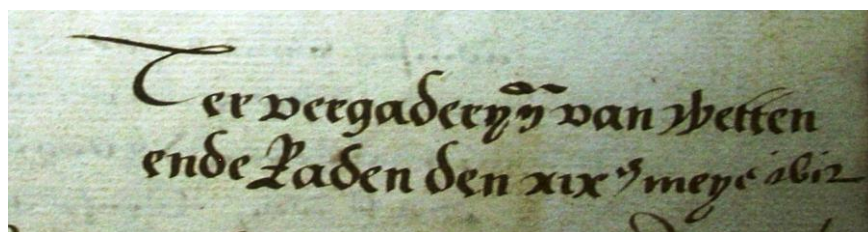 Ter vergaderyn̄ van Wetten
ende Raden den xix meye